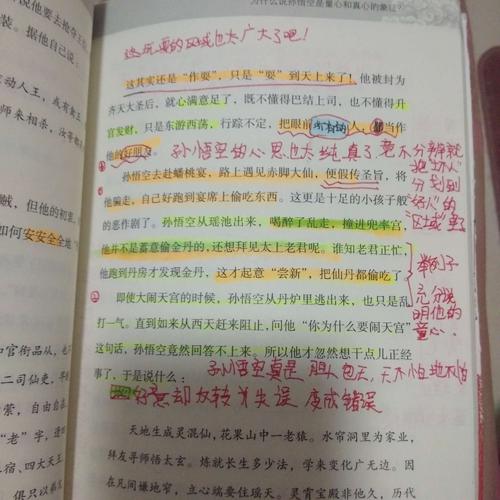 为什么说孙悟空是童心和真心的象征?
这玩耍的区域也太广大了吧!
这其实还是“作耍”,只是“耍”到天上来了!他被封为
齐天大圣后,就心满意足了,既不懂得巴结上司,也不懂得升
官发财,只是东游西荡,行踪不定,把眼前所有的人,都当作
他的好朋友。
孙小悟空的心思也太纯真了,竟不分辨就
把“坏人”
分划到
“好人”的
“区域”里
孙悟空去赴蟠桃宴,路上遇见赤脚大仙,便假传圣旨,将
他骗走,自己好跑到宴席上偷吃东西。这更是十足的小孩子般
的恶作剧了。孙悟空从瑶池出来,喝醉了乱走,撞进兜率宫,
他并不是蓄意偷金丹的,还想拜见太上老君呢。谁知老君正忙,
他跑到丹房才发现金丹,这才起意“尝新”,把仙丹都偷吃了。
举例子
充分说
明他的
童心.
即使大闹天宫的时候,孙悟空从丹炉里逃出来,也只是乱
打一气。直到如来从西天赶来阻止,问他“你为什么要闹天宫”
这句话,孙悟空竟然回答不上来。所以他才忽然想干点儿正经
事了,于是说什么:
孙小悟空真是胆大包天,天不怕地不怕
好意却反转为失误 变成错误
天地生成灵混仙,花果山中一老猿。水帘洞里为家业,
拜友寻师悟太玄。炼就长生多少法,学来变化广无边。因
在凡间嫌地窄,立心端要住瑶天。灵霄宝殿非他久,历代
说他要去抢夺王
装。据他自己说:
动人王,或有禽王
师来相杀,汝等都
贼,但他的初衷,
如何安安全全地“
和官衔品从,也不
二司仙吏,早
萦,自由自在
“老”字,逢四
宿、四大天王
俱只以弟兄